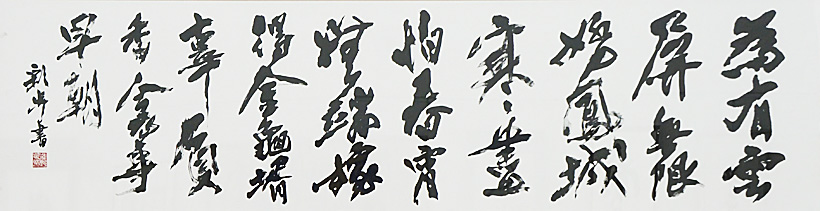 為有雲
屏無限
嬌鳳城
寒盡
怕春宵
無端嫁
得金龜壻
辜負
香衾事
早朝
書